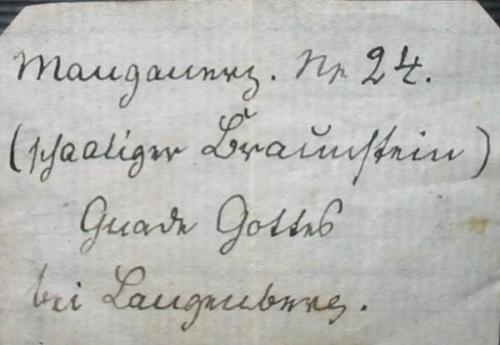 Manganerz. No 24.
(schaaliger Braunstein)
Gnade Gottes
bei Langenberg.